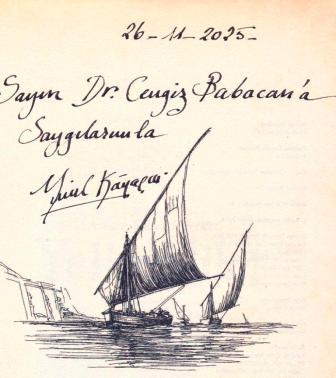 26-11-2025-
Sayın Dr. Cengiz Babacan'a
Saygılarımla